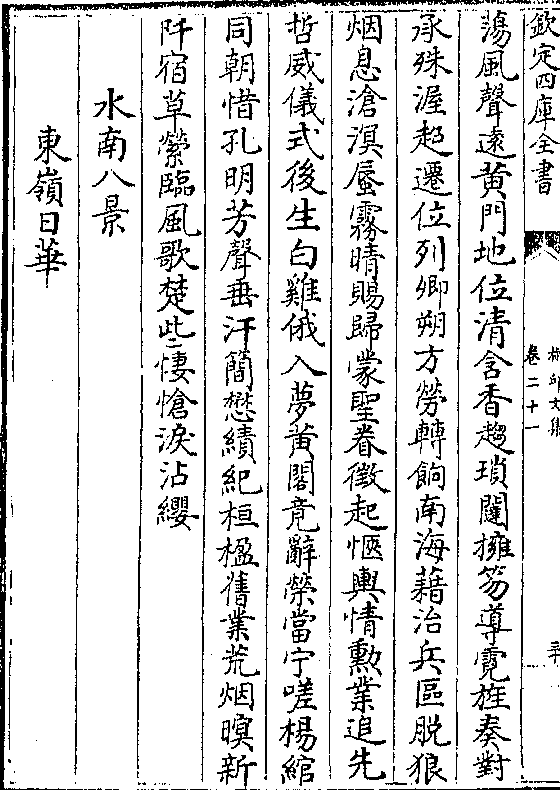 欽定四庫全書
卷二十一
蕩風聲遠黄門地位清含香趨瑣闥擁笏導霓旌奏對
承殊渥超遷位列卿朔方勞轉餉南海藉治兵區脱狼
烟息滄溟蜃霧晴賜歸蒙聖眷徵起愜輿情勲業追先
哲威儀式後生白雞俄入夢黄閣竟辭榮當宁嗟楊綰
同朝惜孔明芳聲垂汗簡懋績紀桓楹舊業荒烟暝新
阡宿草縈臨風歌楚些悽愴淚沾纓
水南八景
東嶺日華